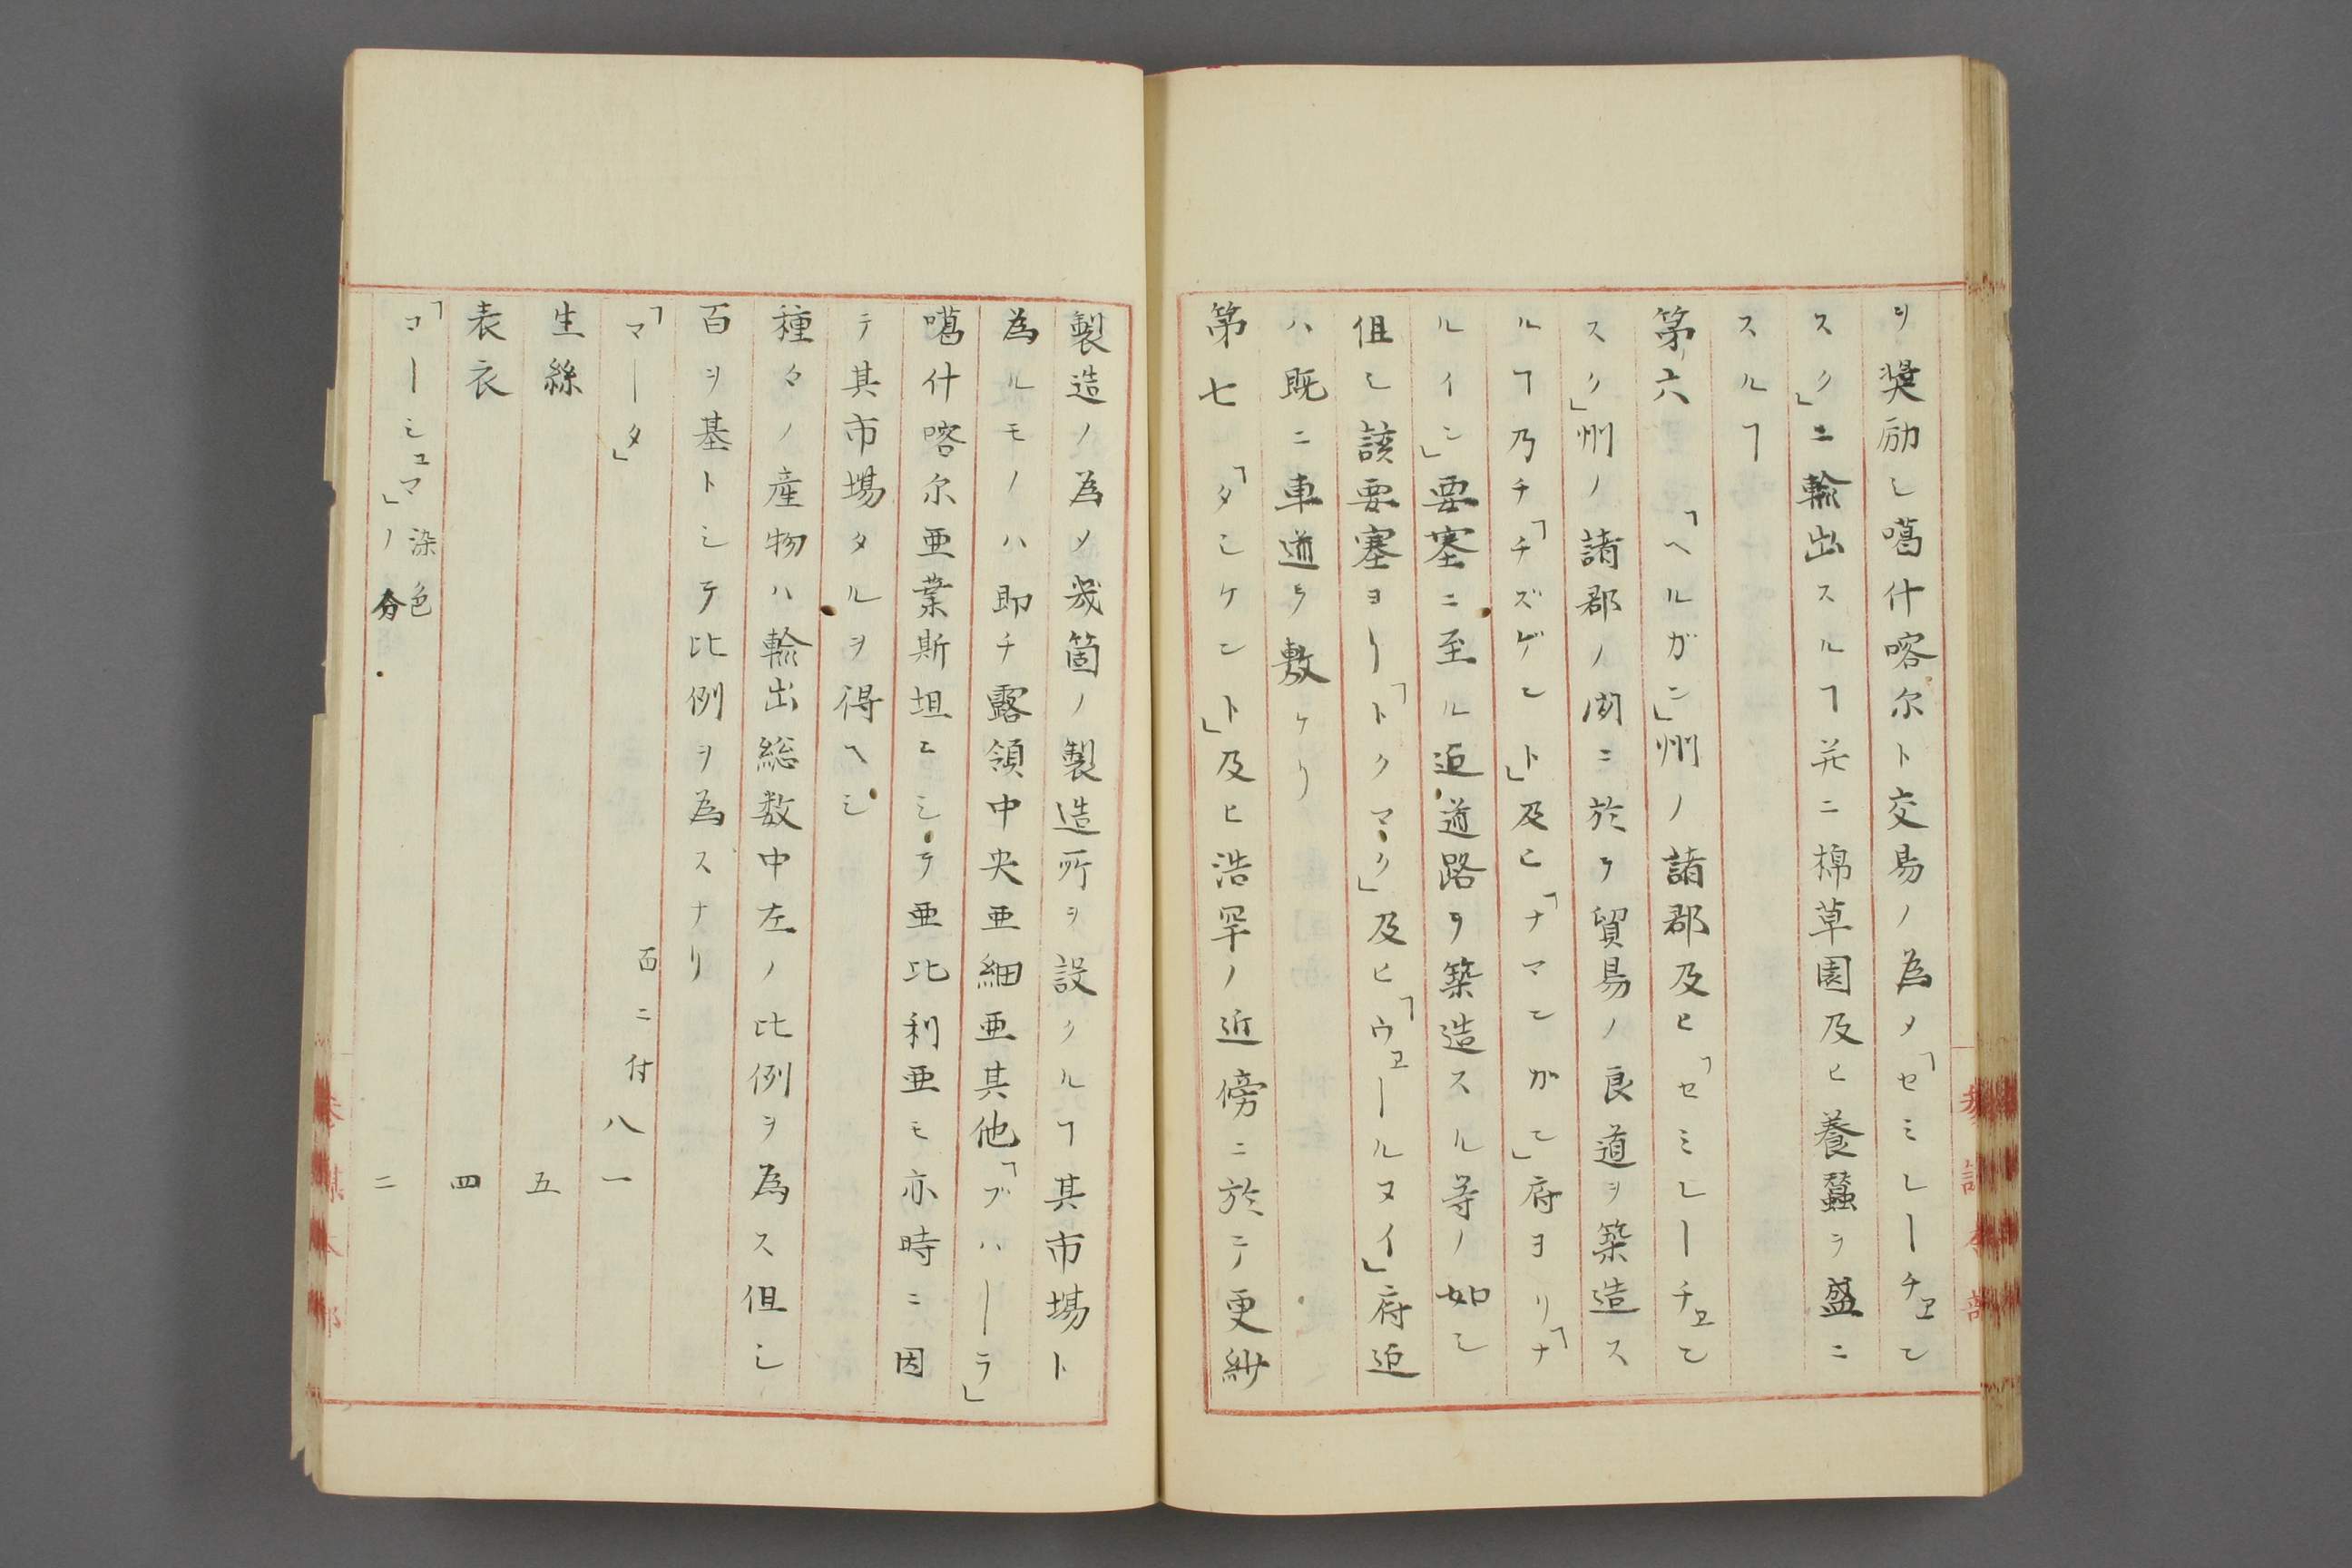 ヲ奨励シ噶什喀尔ト交易ノ為メ「セミレーチヱン
スク」ニ輸出スルヿ并ニ棉草園及ヒ養蠶ヲ盛ニ
スルヿ
第六　「ヘルガン」州ノ諸郡及ヒ「セミレーチヱン
スク」州ノ諸郡ノ間ニ於テ貿易ノ良道ヲ築造ス
ルヿ乃チ「チズゲント」及ヒ「ナマンガン」府ヨリ「ナ
ルイン」要塞ニ至ル迠道路ヲ築造スル等ノ如シ
但シ該要塞ヨリ「トクマク」及ヒ「ウヱールヌイ」府迠
ハ既ニ車道ヲ敷ケリ
第七　「タシケント」及ヒ浩罕ノ近傍ニ於テ更紗
製造ノ為メ幾箇ノ製造所ヲ設クルヿ其市場ト
為ルモノハ即チ露領中央亜細亜其他「ブハーラ」
噶什喀尔亜業斯坦ニシテ亜比利亜モ亦時ニ因
テ其市場タルヲ得ヘシ
種々ノ産物ハ輸出総数中左ノ比例ヲ為ス但シ
百ヲ基トシテ比例ヲ為スナリ
百ニ付
「マータ」　八一
生絲　五
表衣　四
「マーシュマ」ノ染色分　二